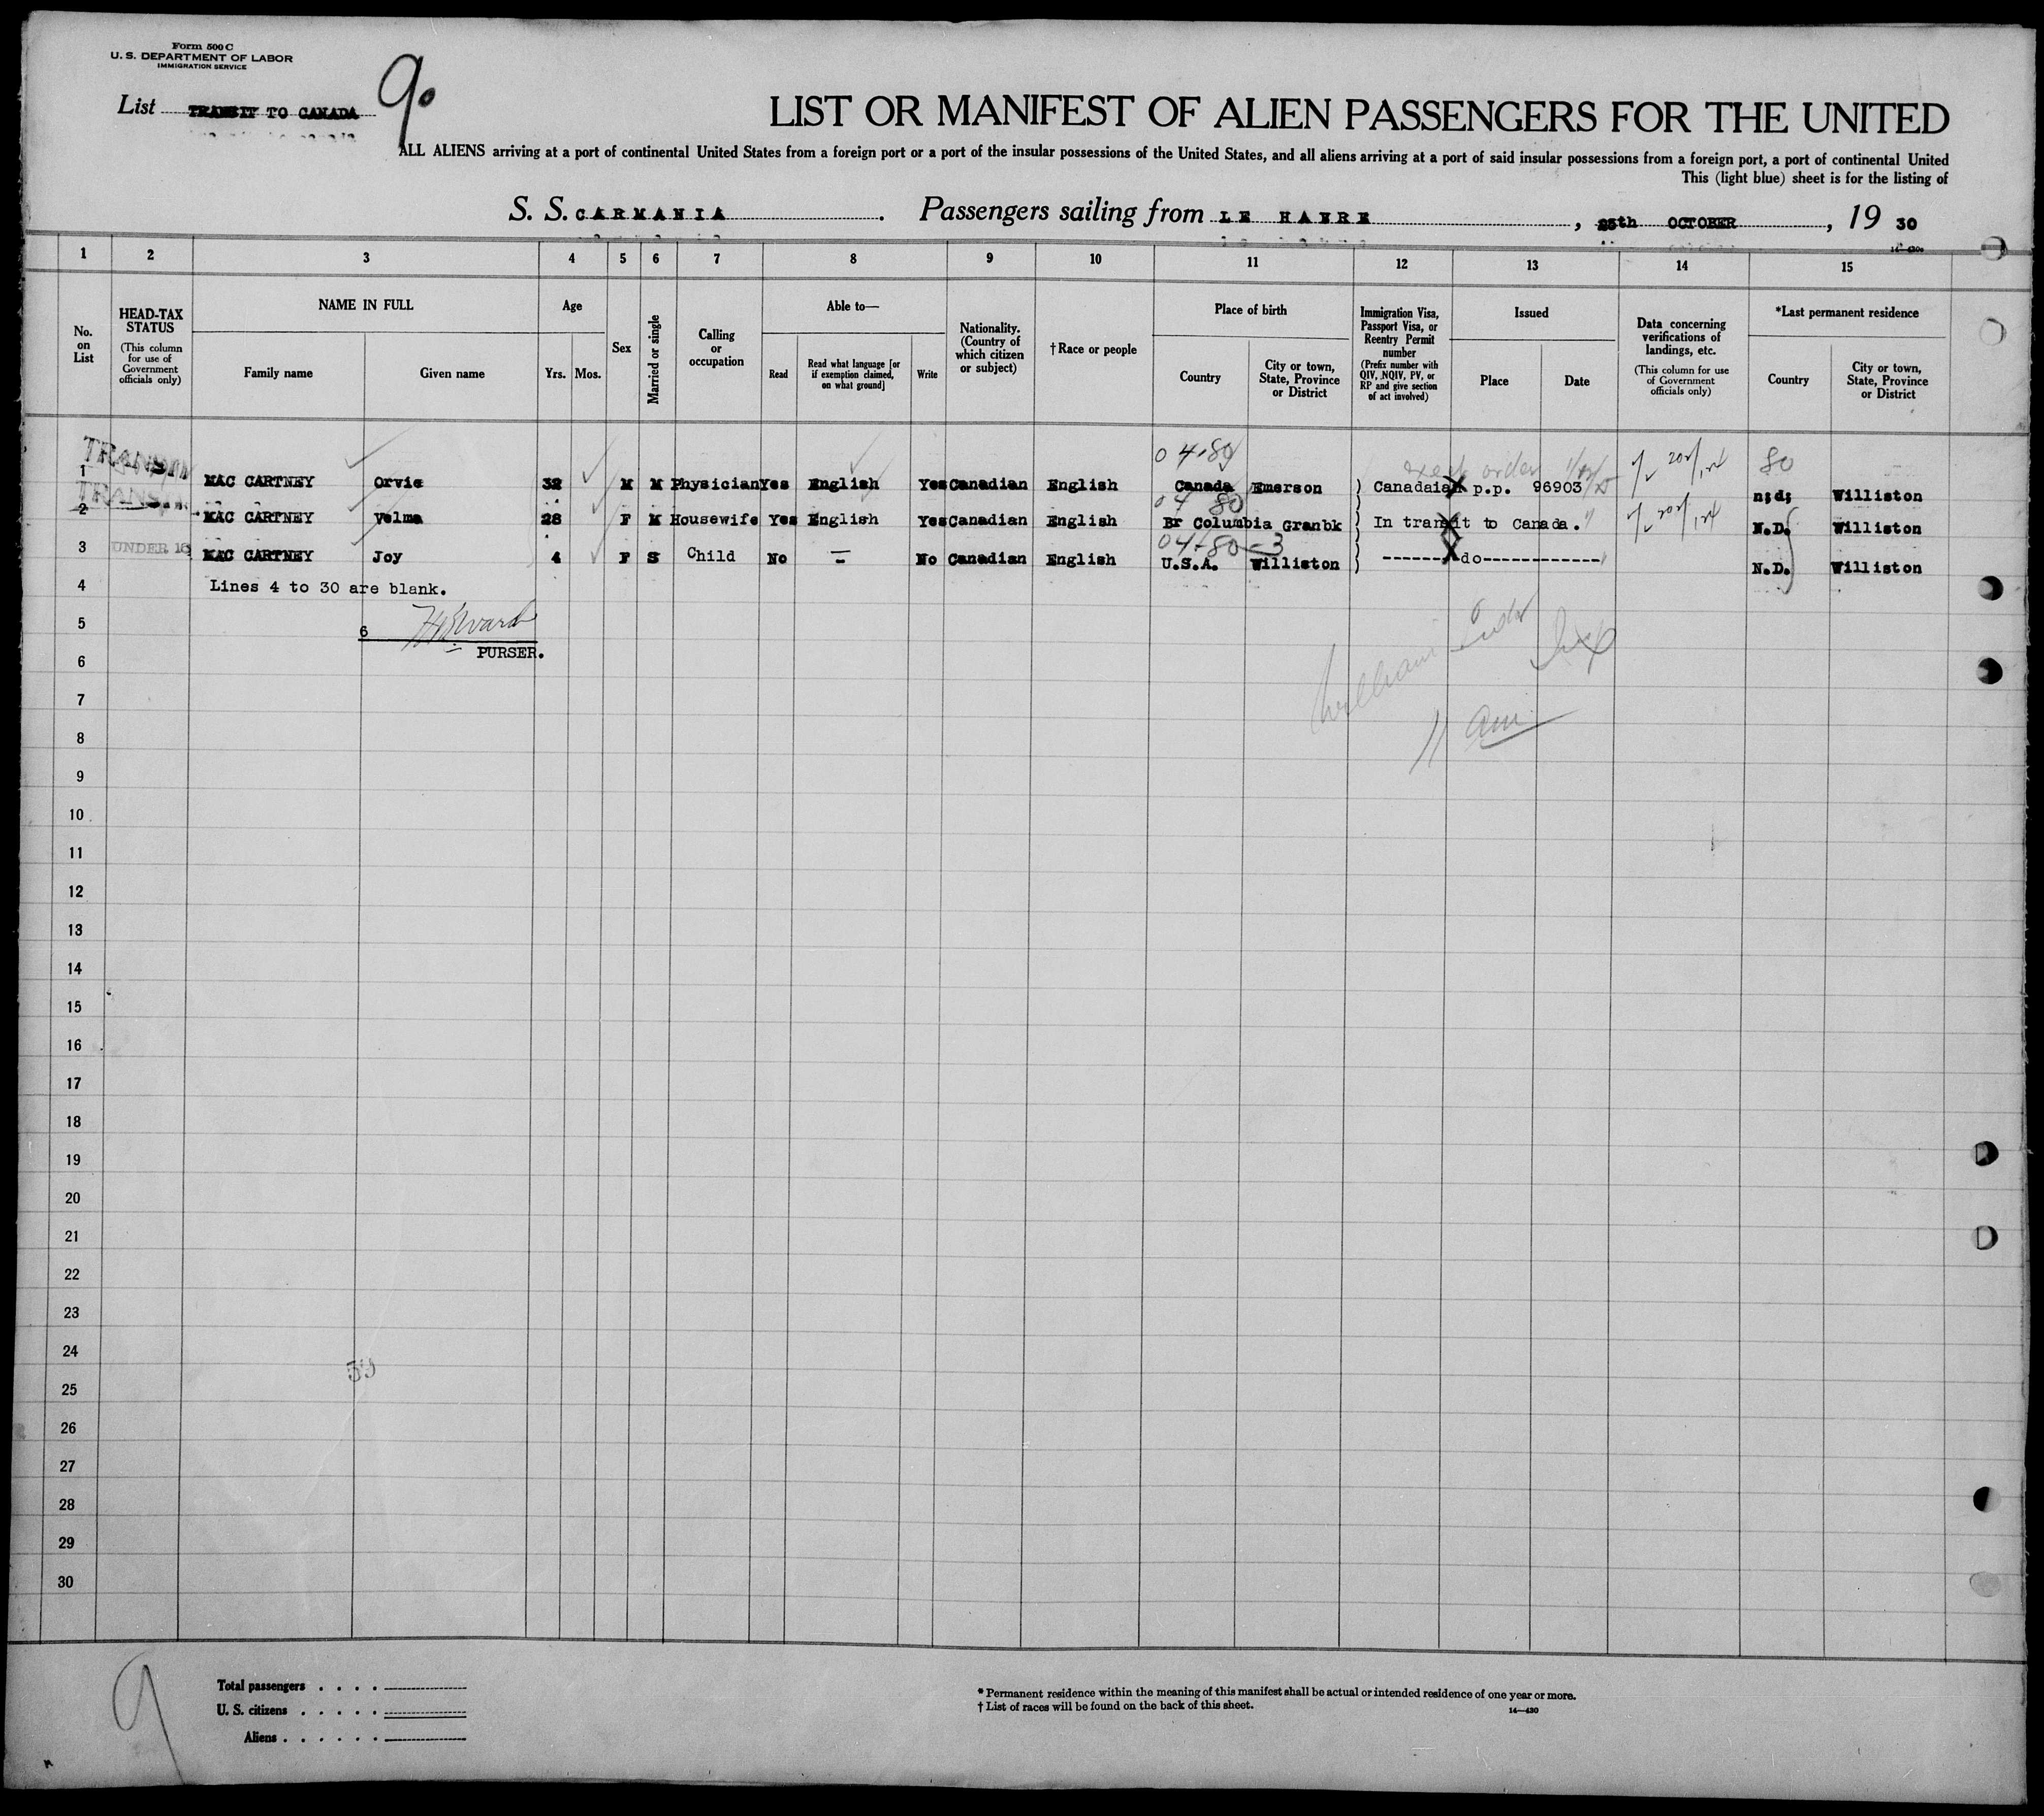 Form 500 C
U. S. DEPARTMENT OF LABOR
IMMIGRATION SERVICE
List TRANSIT TO CANADA 90
LIST OR MANIFEST OF ALIEN PASSENGERS FOR THE UNITED
ALL ALIENS arriving at a port of continental United States from a foreign port or a port of the insular possessions of the United States, and all aliens arriving at a port of said insular possessions from a foreign port, a port of continental United
This (light blue) sheet is for the listing of
S. S. CARMANIA. Passengers sailing from LE HAVRE, 25th OCTOBER, 19 30
1 2 3 4 5 6 7 8 9 10 11 12 13 14 15
No. on List
HEAD-TAX STATUS (This column for use of Government officials only)
NAME IN FULL
Family name Given name
Age
Yrs. Mos.
Sex
Married or single
Calling or occupation
Able to—
Read Read what language [or if exemption claimed, on what ground] Write
Nationality. (Country of which citizen or subject)
†Race or people
Place of birth
Country City or town, State, Province or District
Immigration Visa, Passport Visa, or Reentry Permit number (Prefix number with QIV, NQIV, PV, or RP and give section of act involved)
Issued
Place Date
Data concerning verifications of landings, etc. (This column for use of Government officials only)
*Last permanent residence
Country City or town, State, Province or District
04-80 80
1 TRANSIT MAC CARTNEY Orvie 32 M M Physician Yes English Yes Canadian English Canada Emerson ) Canadaian p.p. 96903 n;d; Williston
04 80
2 TRANSIT MAC CARTNEY Velma 28 F M Housewife Yes English Yes Canadian English Br Columbia Granbk ) In transit to Canada. N.D. Williston
04-80-3
3 UNDER 16 MAC CARTNEY Joy 4 F S Child No - No Canadian English U.S.A. Williston ) -------do------------ N.D. Williston
4 Lines 4 to 30 are blank.
5
6
PURSER.
6
William
11 am
7
8
9
10
11
12
13
14
15
16
17
18
19
20
21
22
23
24
59
25
26
27
28
29
30
9
Total passengers . . . .
U. S. citizens . . . . .
Aliens . . . . . .
* Permanent residence within the meaning of this manifest shall be actual or intended residence of one year or more.
† List of races will be found on the back of this sheet.
14—430